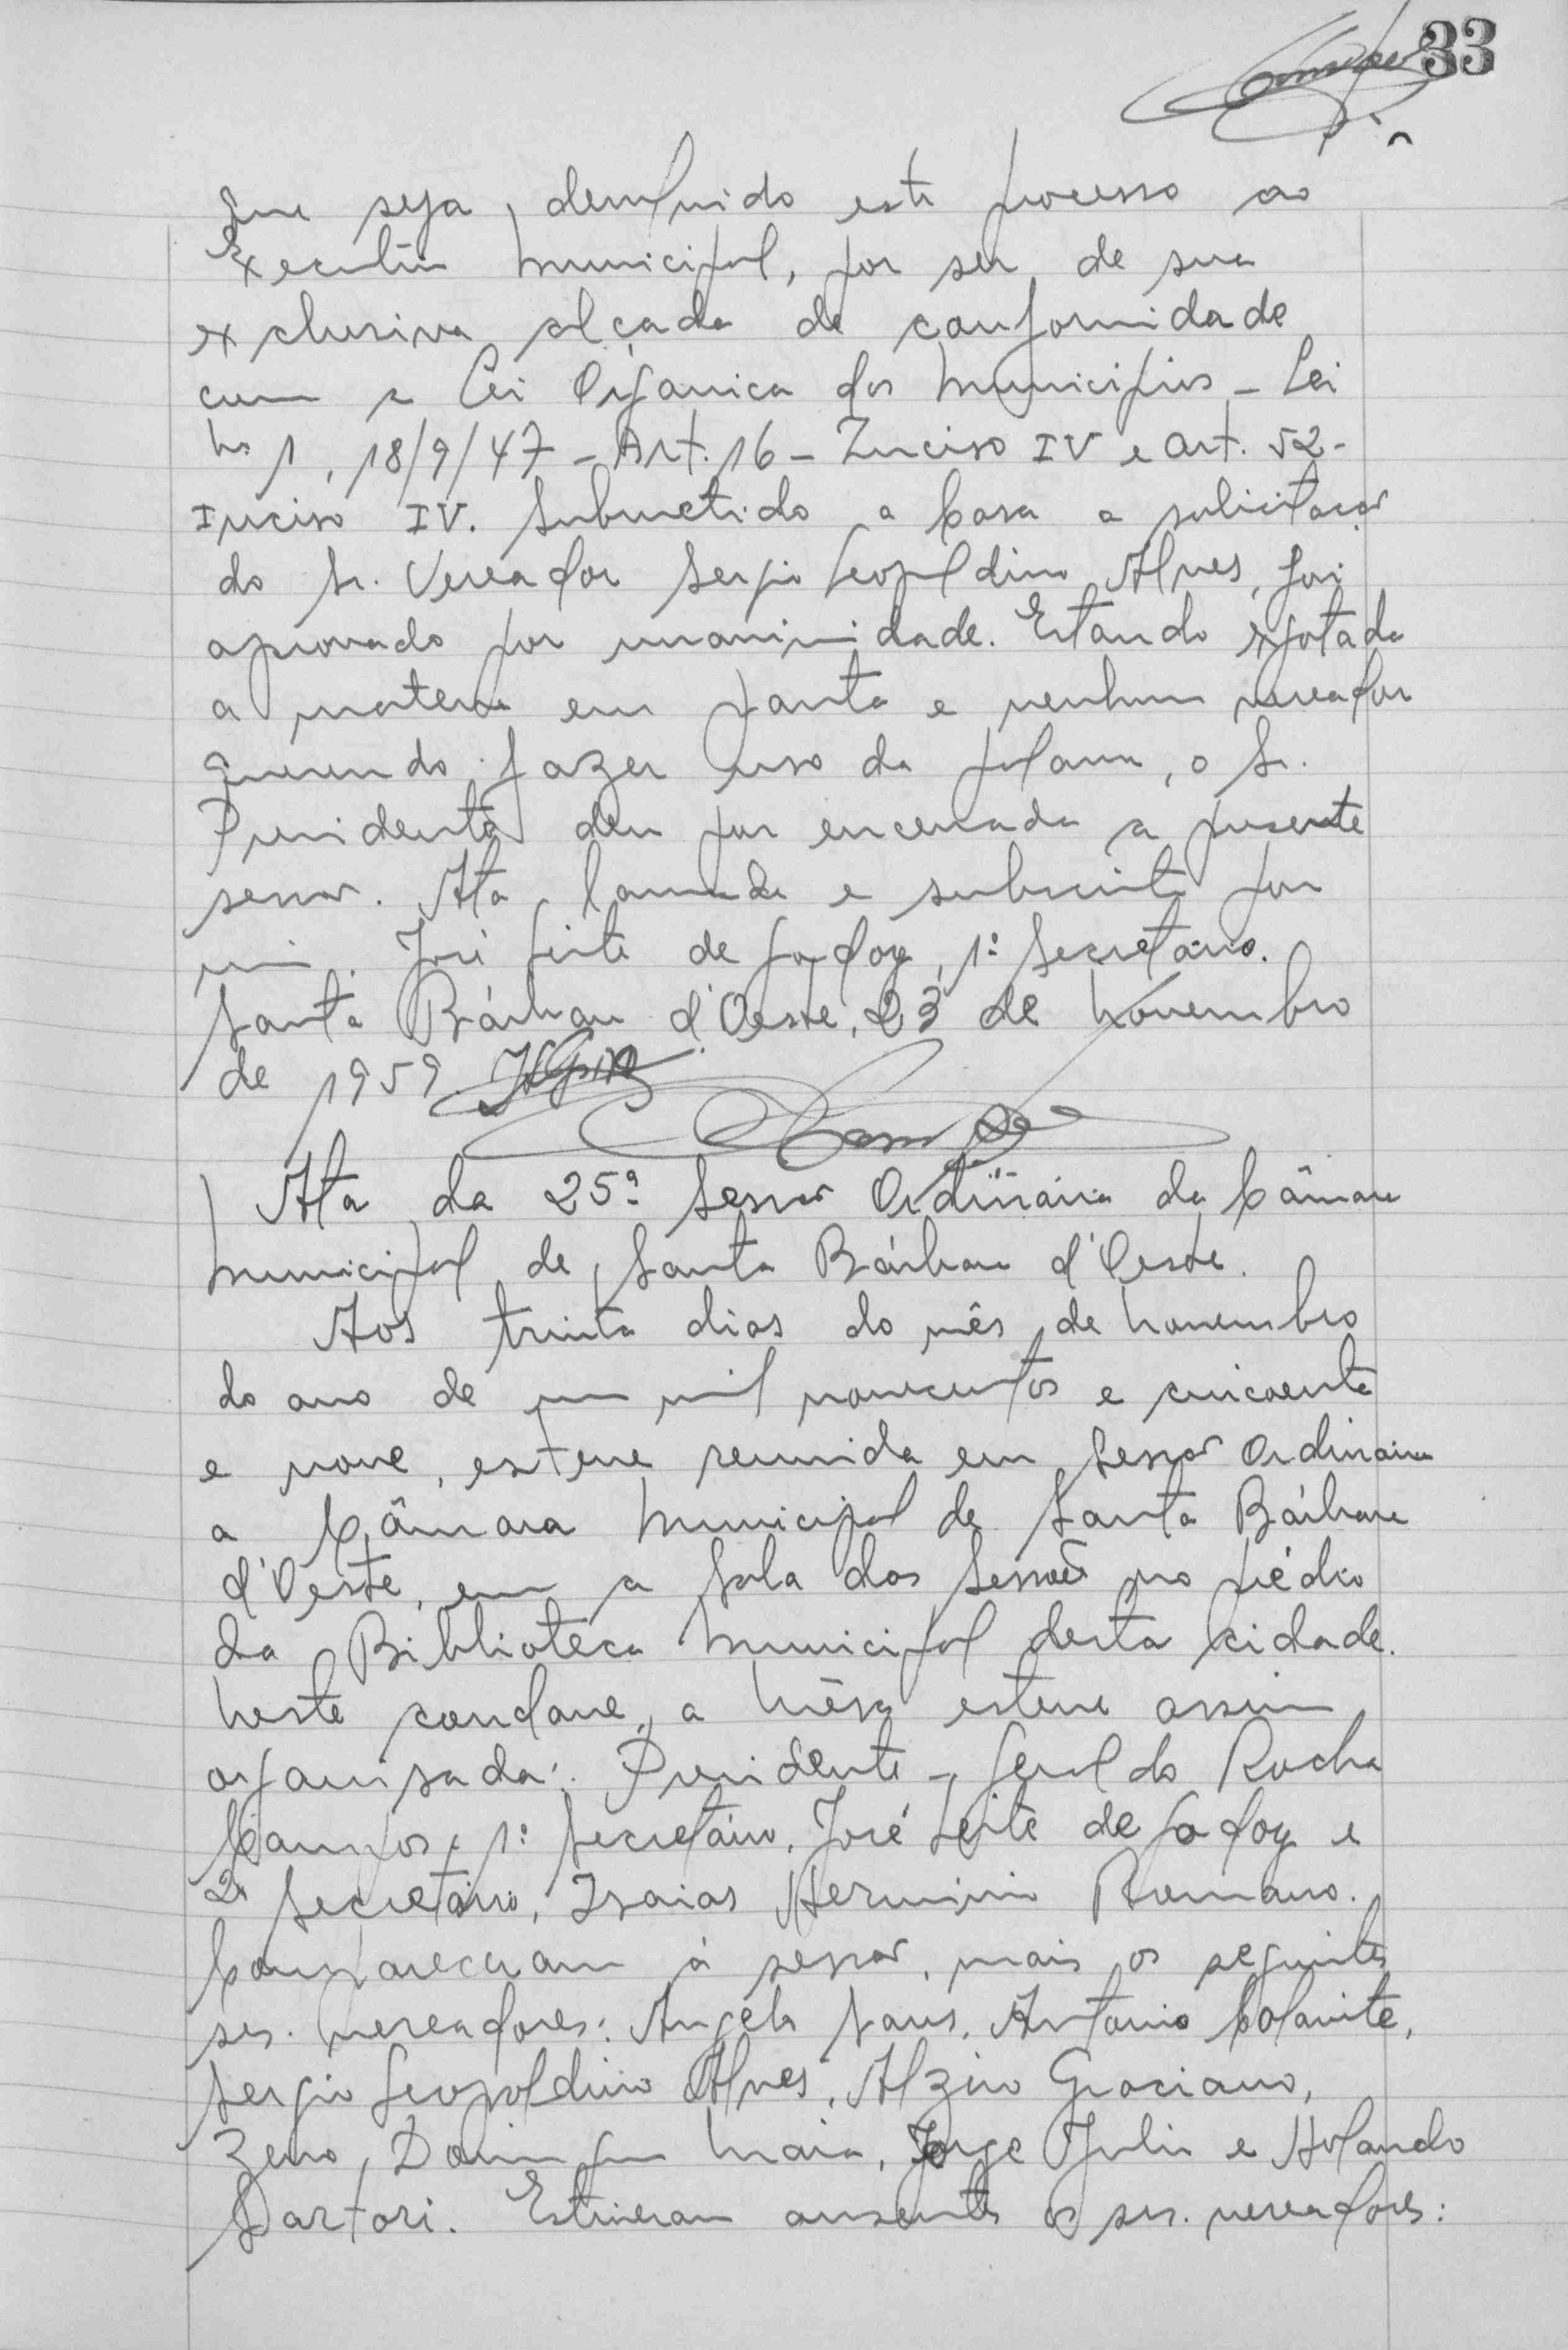 33
que seja devolvido este processo ao
Executivo Municipal, por ser de sua
exclusiva alçada de conformidade
com a Lei Orgânica dos Municipios - Lei
nº 1, 18/9/47 - Art. 16 - Inciso IV e art. 52 -
Inciso IV. Submetido a Casa a solicitação
do Sr. Vereador Sergio Leopoldino Alves, foi
aprovado por unanimidade. Estando esgotada
a materia em pauta e nenhum vereador
querendo fazer uso da palavra, o Sr.
Presidente deu por encerrada a presente
sessão. Ata lavrada e subscrita por
mim, José Leite de Godoy, 1º Secretário.
Santa Bárbara d'Oeste, 23 de Novembro
de 1959.
Ata da 25ª Sessão Ordinária da Câmara
Municipal de Santa Bárbara d'Oeste.
Aos trinta dias do mês de Novembro
do ano de um mil novecentos e cincoenta
e nove, esteve reunida em Sessão Ordinária
a Câmara Municipal de Santa Bárbara
d'Oeste, em a Sala das Sessões no prédio
da Biblioteca Municipal desta cidade.
Neste conclave, a Mêsa esteve assim
organisada: Presidente - Geraldo Rocha
Campos, 1º Secretário, José Leite de Godoy e
2º Secretário, Isaias Herminio Romano.
Compareceram à sessão, mais os seguintes
srs. vereadores: Angelo Sans, Antonio
Sergio Leopoldino Alves, Alziro Graciano,
Zeno Domingues Maia, Jorge Julio e Holando
Sartori. Estiveram ausentes os srs. vereadores: